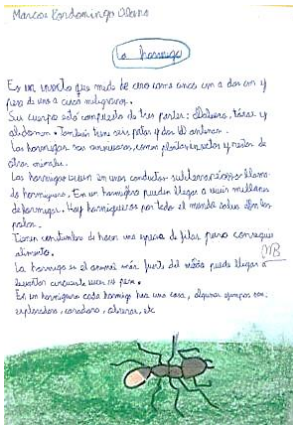 Marcos Bordomingo Olano
La hormiga
Es un insecto que mide de cino unos con a dos cm y
pesa de uno a cinco miligramos.
Su cuerpo está compuesto de tres partes: , tórax y
abdomen. También tiene seis patas y dos antenas.
Las hormigas son omnívoras, comen plantas insectos y restos de
otros animales.
Las hormigas viven en unos conductos subterráneos llama
do hormiguero. En un hormiguero pueden llegar a vivir millares
de hormigas. Hay hormigueros por todo el mundo salvo en los
polos.
Tienen costumbre de hacer una especie de filas para conseguir
alimento.
MB
La hormiga es el animal más fuerte del mundo puede llegar a
cincuenta veces su peso.
En un hormiguero cada hormiga hace una cosa, algunos ejemplos son:
exploradora, , obreras, etc